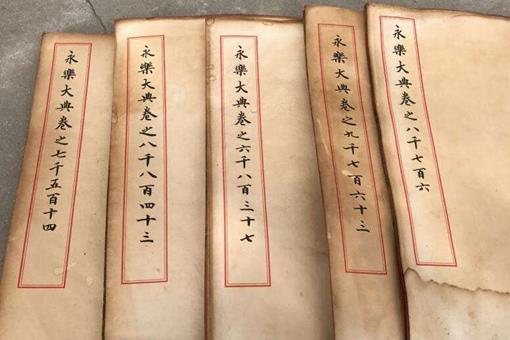 永樂大典卷之七千五百十四
永樂大典卷之八千八百四十三
永樂大典卷之六千八百三十七
永樂大典卷之九千七百六十三
永樂大典卷之八千七百六